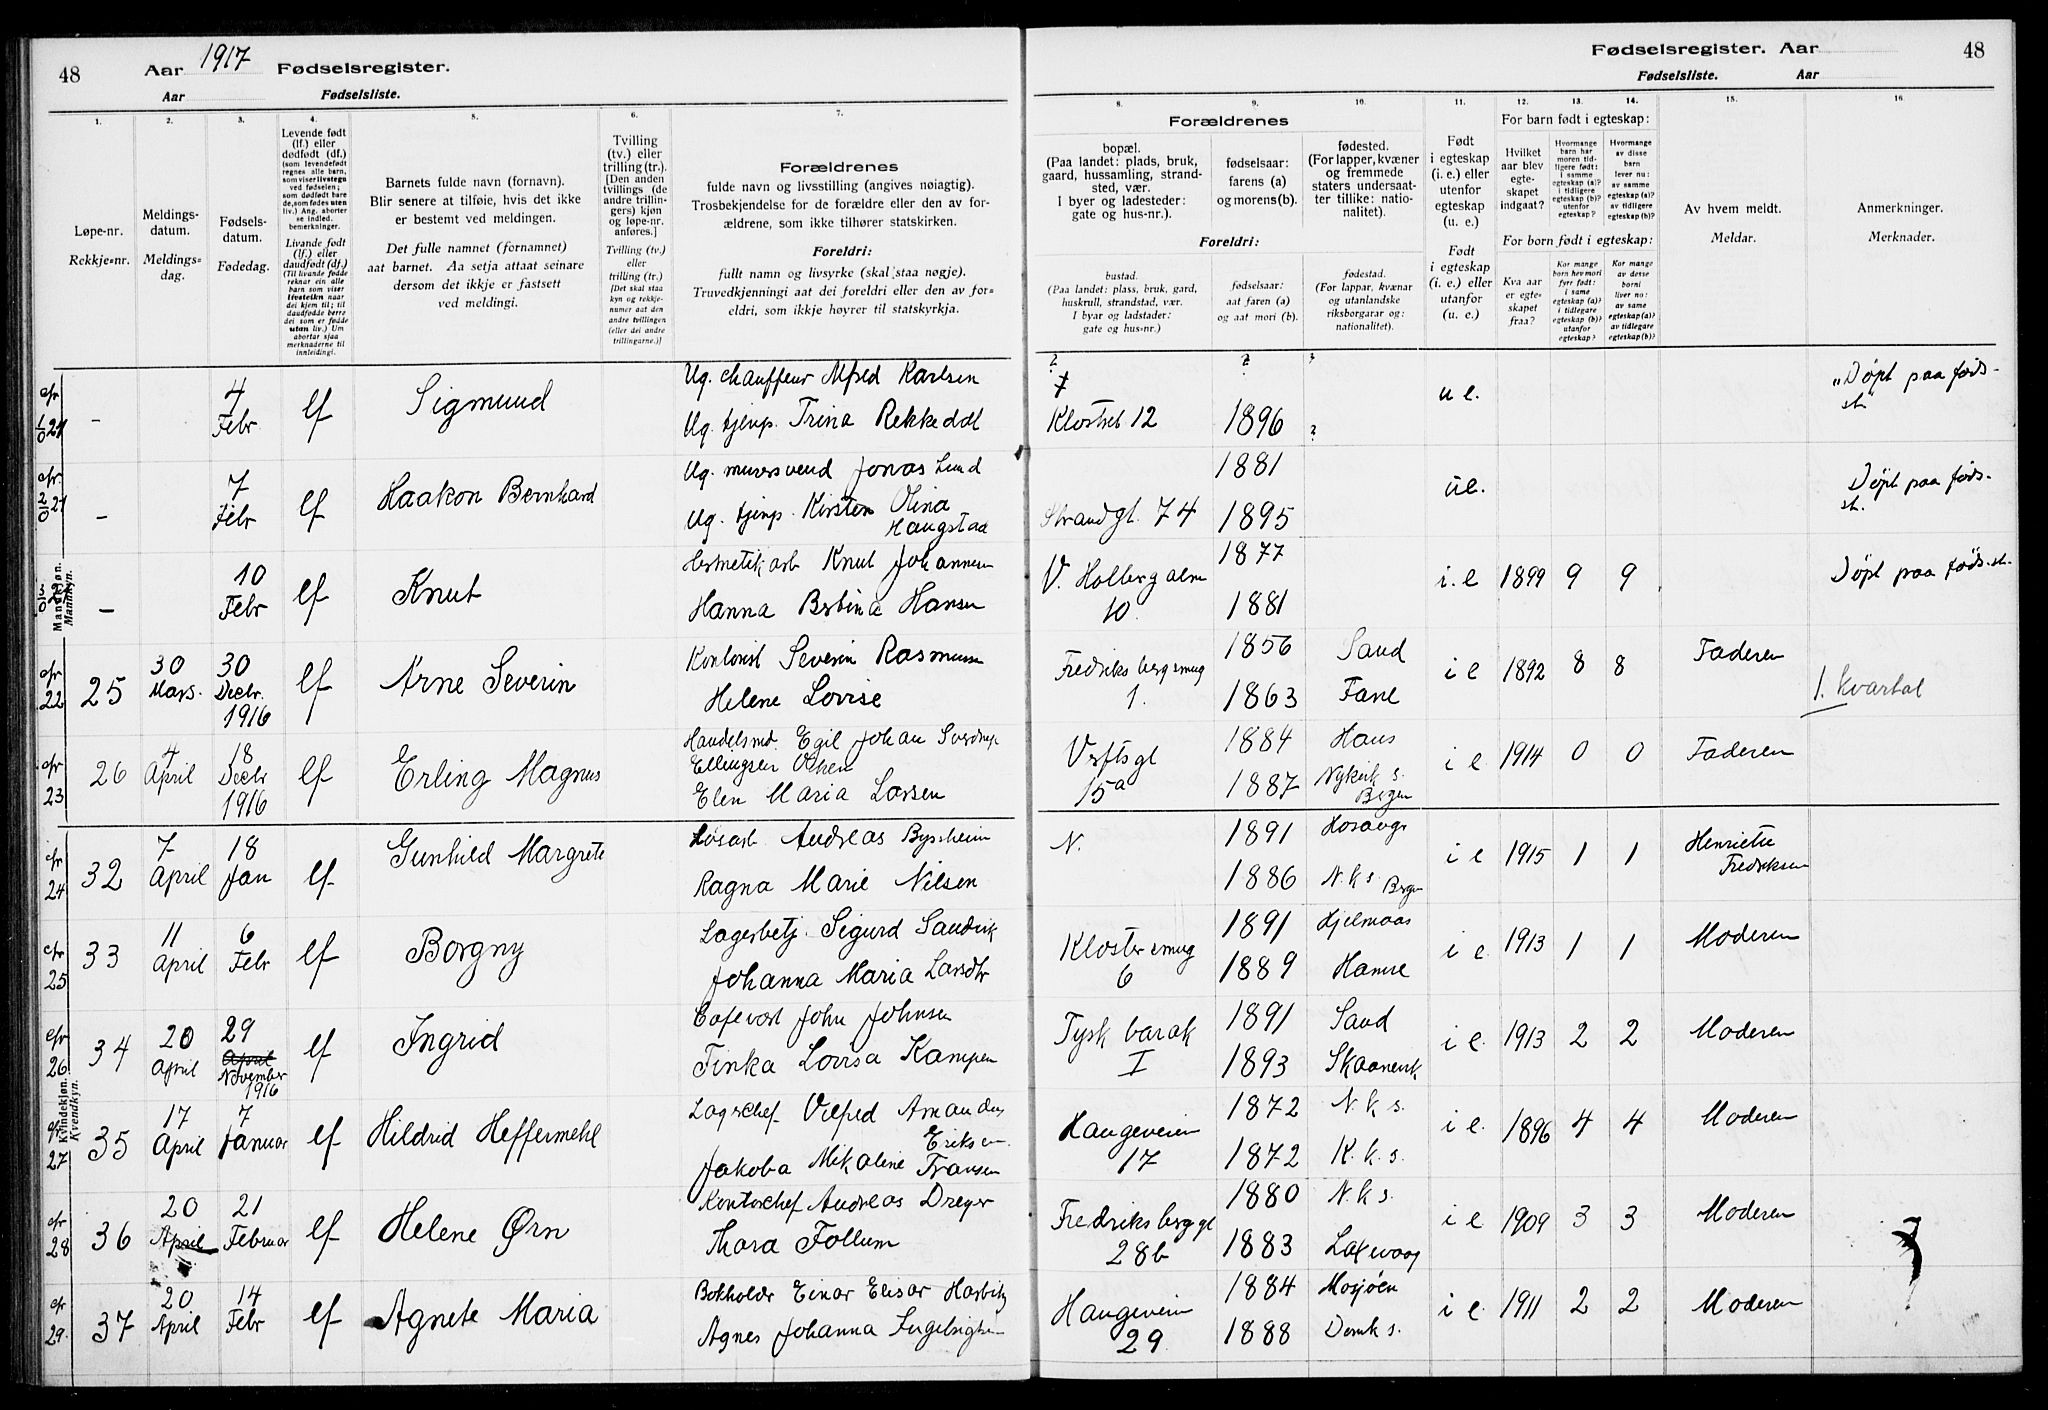 48
Aar 1917 Fødselsregister.
Aar Fødselsliste.
Fødselsregister. Aar
48
Fødselsliste. Aar
1. 2. 3. 4. 5. 6. 7. 8. 9. 10. 11. 12. 13. 14. 15. 16.
Løpe-nr.
Rekkje=nr.
Meldings-
datum.
Meldings-
dag.
Fødsels-
datum.
Fødedag.
Levende født
(lf.) eller
dødfødt (df.)
Livande født
(lf.) eller
daudfødt (df.)
Barnets fulde navn (fornavn).
Blir senere at tilføie, hvis det ikke
er bestemt ved meldingen.
Det fulle namnet (fornamnet)
aat barnet. Aa setja attaat seinare
dersom det ikkje er fastsett
ved meldingi.
Tvilling
(tv.) eller
trilling (tr.).
[Den anden
tvillings (de
andre trillin-
gers) kjøn
og løpe-nr.
anføres.]
Tvilling (tv.)
eller
trilling (tr.)
[Det skal staa
kyn og rekkje-
numer aat den
andre tvillingen
(eller dei andre
trillingarne.)]
Forældrenes
fulde navn og livsstilling (angives nøiagtig).
Trosbekjendelse for de forældre eller den av for-
ældrene, som ikke tilhører statskirken.
Foreldri:
fullt namn og livsyrke (skal staa nøgje).
Truvedkjenningi aat dei foreldri eller den av for=
eldri, som ikkje høyrer til statskyrkja.
Forældrenes
bopæl.
(Paa landet: plads, bruk,
gaard, hussamling, strand-
sted, vær.
I byer og ladesteder:
gate og hus-nr.).
fødselsaar:
farens (a)
og morens(b).
fødested.
(For lapper, kvæner
og fremmede
staters undersaat-
ter tillike: natio-
nalitet).
Foreldri:
bustad.
(Paa landet: plass, bruk, gard,
huskrull, strandstad, vær.
I byar og ladstader:
gate og hus=nr.)
fødselsaar:
aat faren (a)
og aat mori (b).
fødestad.
(For lappar, kvænar
og utanlandske
riksborgarar og:
nationalitet).
Født
i egteskap
(i. e.) eller
utenfor
egteskap
(u. e.)
Født
i egteskap
(i. e.) eller
utanfor
(u. e.)
For barn født i egteskap:
Hvilket
aar blev
egte-
skapet
indgaat?
For born født i egteskap:
Kva aar
er egte-
skapet
fraa?
Av hvem meldt.
Meldar.
Anmerkninger.
Merknader.
Mandkjøn.
Mannkyn.
- 4 Febr lf Sigmund Ug. chauffeur Alfred Karlsen
Ug. tjenp. Trina Rekkedal Klostret 12 1896 u e. "Døpt paa føds-
st."
- 7 Febr lf Haakon Bernhard Ug. murersvend Jonas Lund 1881
Ug. tjenp. Kirsten Olina Haugstad Strandgt. 74 1895 u e. Døpt paa føds-
st.
- 10 Febr lf Knut Hermetikarb Knut Johannesen 1877
Hanna Bertina Hansen V. Holberg alm 10. 1881 i. e 1899 9 9 Døpt paa føds.st.
22 25 30 Mars. 30 Decbr. 1916 lf Arne Severin Kontorist Severin Rasmussen 1856 Sand
Helene Lovise Fredriksbergsmug 1. 1863 Fane i e 1892 8 8 Faderen 1. kvartal
23 26 4 April 18 Decbr 1916 lf Erling Magnus Handelsmd. Egil Johan Sverdrup Ellingsen 1884 Haus
Elen Maria Larsen Verftsgt 15a 1887 Nykirk s. Bergen i e 1914 0 0 Faderen
Kvindekjøn.
Kvendkyn.
24 32 7 April 18 Jan lf Gunhild Margrete Løsarb Andreas Byrsheim N. 1891 Hosangr
Ragna Marie Nilsen 1886 N. k s Bergen i e 1915 1 1 Henriette Fredriksen
25 33 11 April 6 Febr lf Borgny Lagerbetj. Sigurd Sandvik 1891 Hjelmaas
Johanna Maria Larsdtr Klostersmug 6 1889 Hamre i e. 1913 1 1 Moderen
26 34 20 April 29 April November 1916 lf Ingrid Cafevert John Johnsen 1891 Sand
Tinka Lovisa Kampen Tysk barak I 1893 Skaanevik i e 1913 2 2 Moderen
27 35 17 April 7 Januar lf Hildrid Heffermehl Lagrchef Vilfred Amandus Eriksen 1872 N. k s.
Jakoba Mikaline Fransen Haugeveien 17 1872 K. k. s. i e. 1896 4 4 Moderen
28 36 20 April 21 Februar lf Helene Ørn Kontorchef Andreas Dreyer 1880 N. k s.
Thora Follum Fredriksberggt 28b 1883 Laxevaag i e 1909 3 3 Moderen
29. 37 20 April 14 Febr lf Agnete Maria Bokholder Einar Elisar Harbitz 1884 Mosjøen
Agnes Johanna Ingebrigtsen Haugeveien 29 1888 Domk s. i e 1911 2 2 Moderen